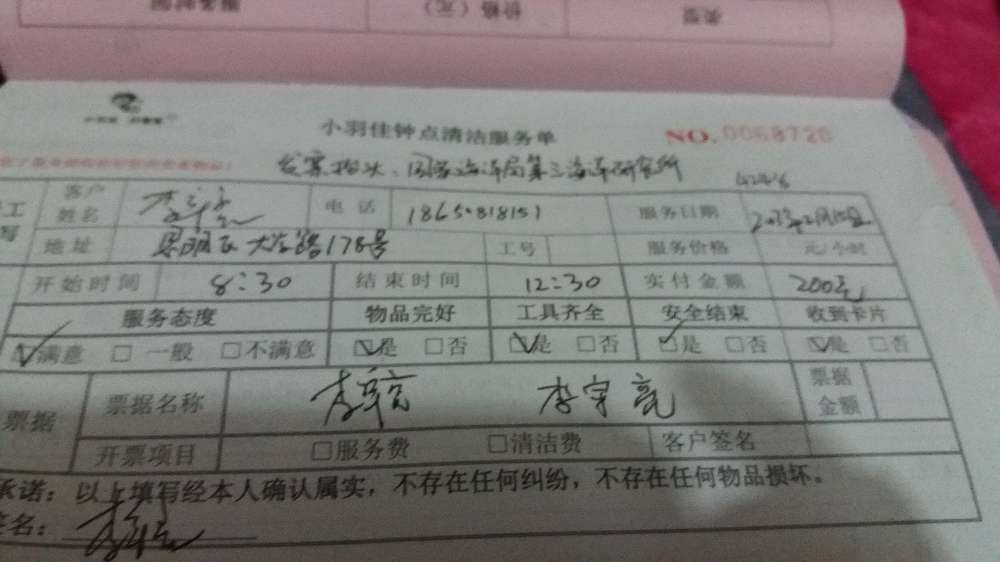 服务时间 价格（元） 类型
小羽佳钟点清洁服务单 NO. 0068720
发票抬头：国家海洋局第三海洋研究所
客户姓名 电话 服务日期
地址 思明区大学路178号 工号 服务价格 元/小时
开始时间 8:30 结束时间 12:30 实付金额 200元
服务态度 物品完好 工具齐全 安全结束 收到卡片
满意 □ 一般 □不满意 是 □否 是 □否 □是 □否 是 □否
票据 票据名称 李宇亮 票据金额
开票项目 □服务费 □清洁费 客户签名
承诺：以上填写经本人确认属实，不存在任何纠纷，不存在任何物品损坏。
签名：